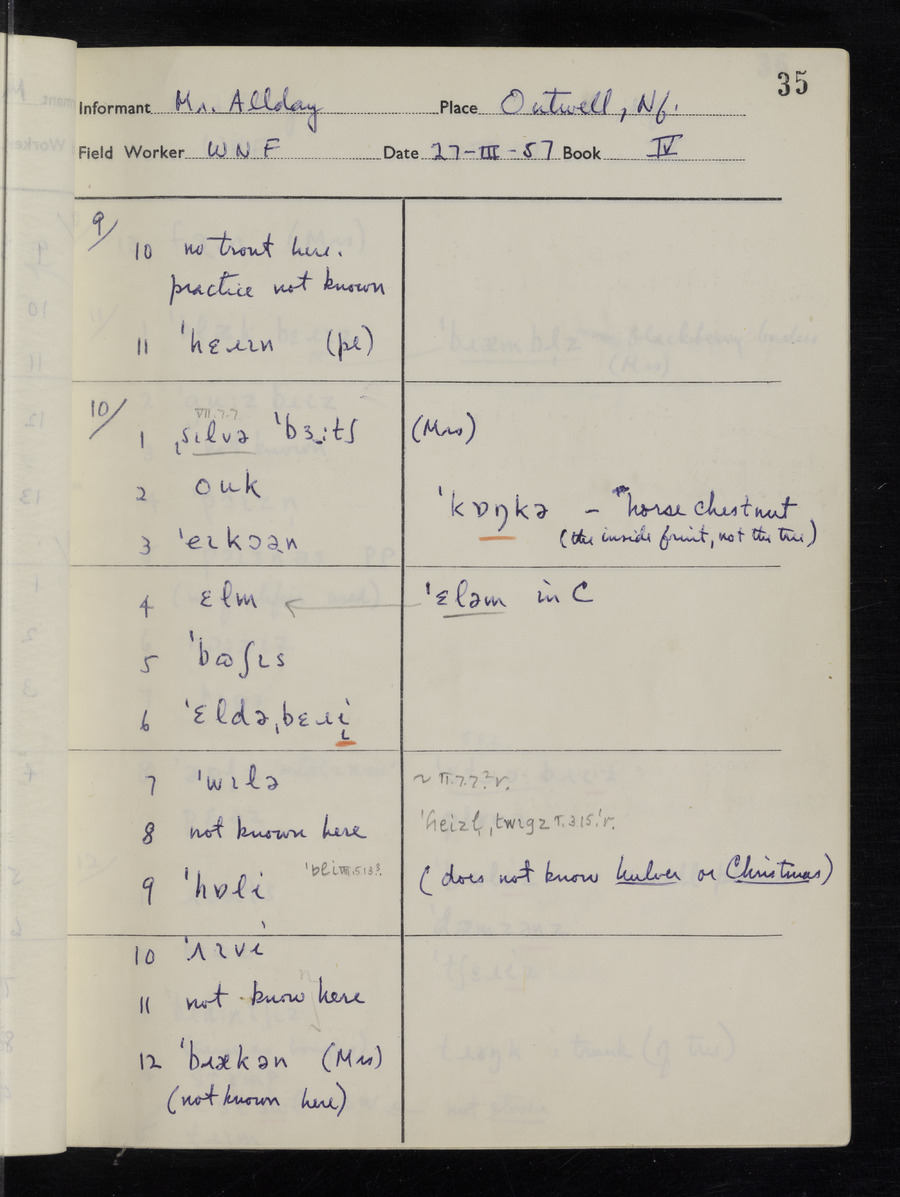 35
Informant Mr. Allday Place Outwell, Nf.
Field Worker WNF Date 27-III-57 Book IV
9/
10 no trout here.
practice not known
11 (pl)
10/
VII.7.7
1 ˌsɩlvə ˈbɜːtʃ (Mrs)
2 oʊk
ˈkɒŋkə – horse chestnut
(the inside fruit, not the tree)
3 ˈeɩkɔən
4 ɛlm ˈɛləm in C
5
6 ˈɛldəˌbɛɹi
7 ˈwɩlə
8 not known here
9 ˈhɒli (does not know hulver or Christmas)
10
11 not know here
12 ˈbɹækən (Mrs)
(not known here)